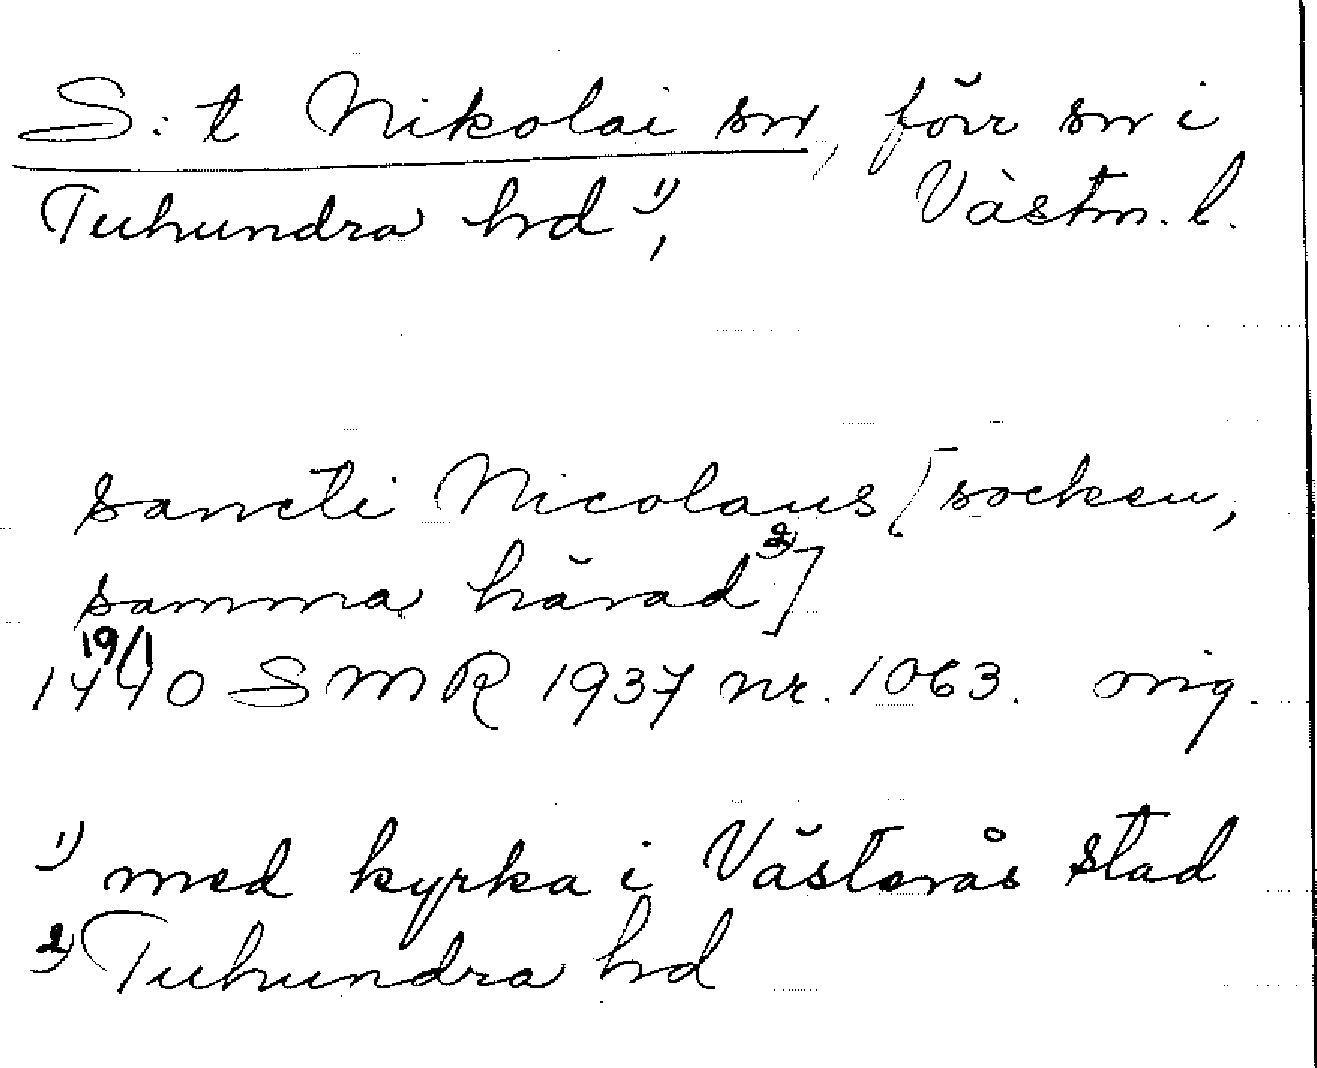 S:t Nikolai sn, förr sn i
Tuhundra hd 1), Västm. l.
sancti Nicolaus [socken,
samma härad 2)]
19/1
1440 SMR 1937 nr. 1063. orig.
1) med kyrka i Västerås stad
2) Tuhundra hd